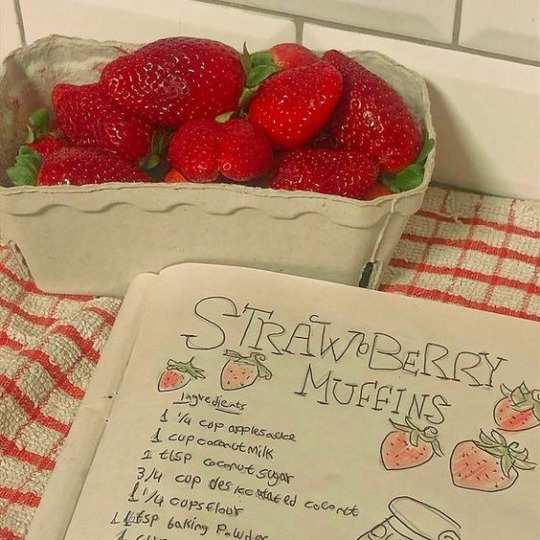 STRAWBERRY
MUFFINS
Ingredients
1 1/4 cup applesauce
1 cup coconut milk
2 tbsp coconut sugar
3/4 cup desiccated coconut
1 1/4 cups flour
tsp baking powder
1